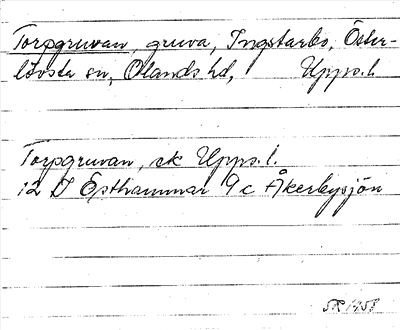 Torpgruvan, gruva, Ingstarbo, Öster-
lövsta sn, Olands hd, Upps.l.
Torpgruvan, ek Upps.l.
12 I Östhammar 9c Åkerbysjön
1958